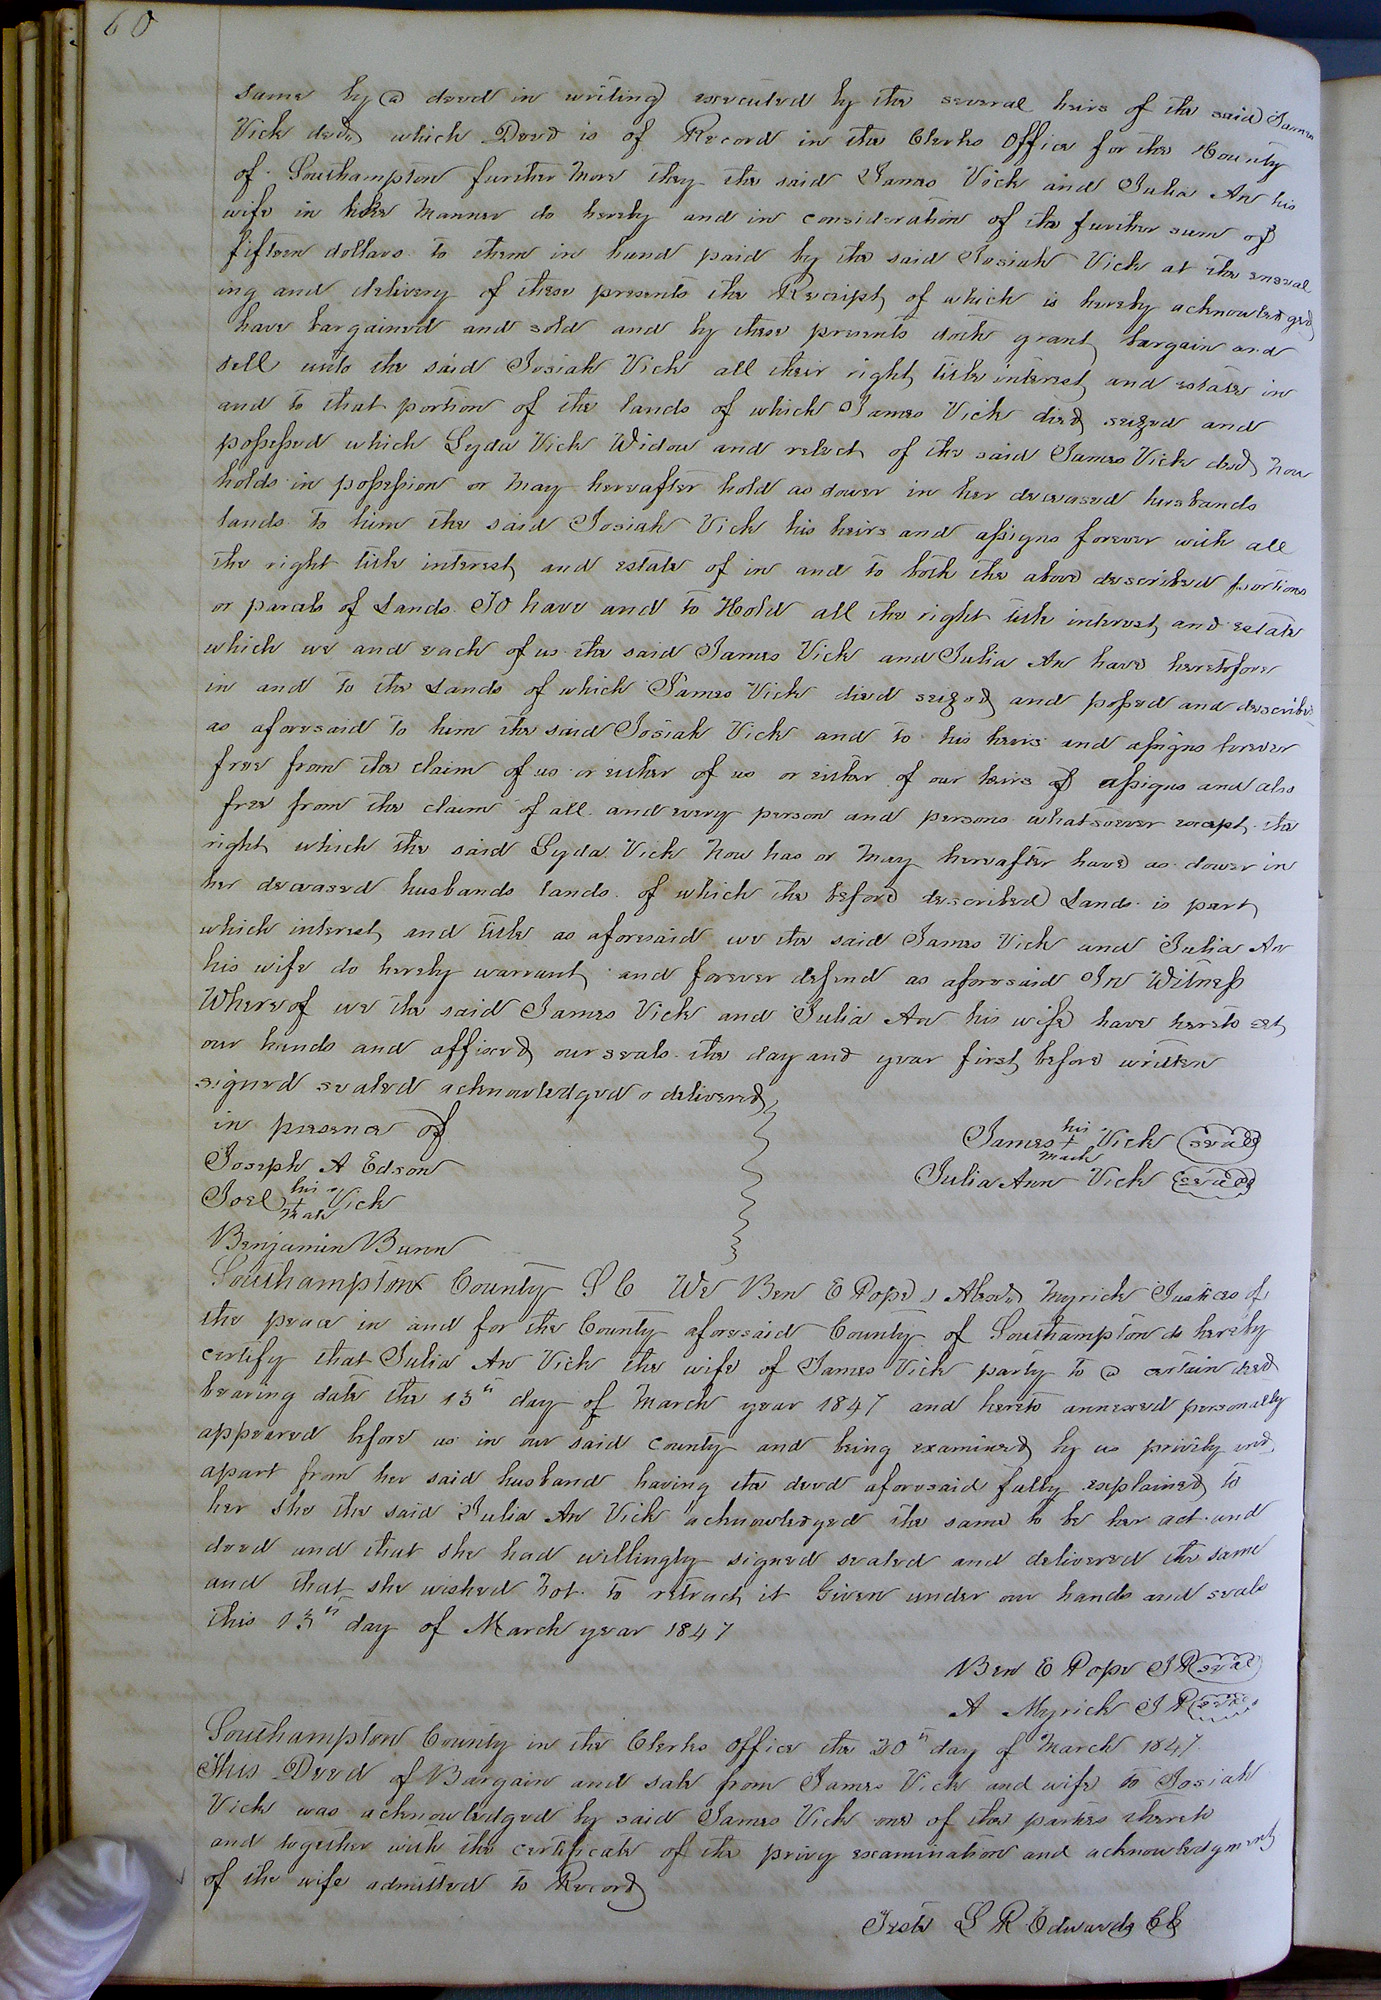 60
same by a deed in writing executed by the several heirs of the said James
Vick decd which Deed is of Record in the Clerks Office for the County
of Southampton further More they the said James Vick and Julia An his
wife in like Manner do hereby and in consideration of the further sum of
fifteen dollars to them in hand paid by the said Josiah Vick at the enseal
ing and delivery of these presents the Receipt of which is hereby acknowledged
have bargained and sold and by these presents doth grant bargain and
sell unto the said Josiah Vick all their right title interest and estate in
and to that portion of the lands of which James Vick died seized and
possessed which Lyda Vick Widow and relect of the said James Vick decd now
holds in possession or May hereafter hold as dower in her deceased husbands
lands to him the said Josiah Vick his heirs and assigns forever with all
the right title interest and estate of in and to both the above described portions
or parcels of Lands To have and to Hold all the right title interest and estate
which we and each of us the said James Vick and Julia An have heretofore
in and to the Lands of which James Vick died seized and possed and describd
as aforesaid to him the said Josiah Vick and to his heirs and assigns forever
free from the claim of us or either of us or either of our heirs of assigns and also
free from the claim of all and every person and persons whatsoever except the
right which the said Lyda Vick Now has or May hereafter have as dower in
her deceased husbands lands of which the before described Lands is part
which interest and title as aforesaid we the said James Vick and Julia An
his wife do hereby warrant and forever defend as aforesaid In Witness
Whereof we the said James Vick and Julia An his wife have hereto set
our hands and affixed our seals the day and year first before written
signed sealed acknowledged & delivered
in presence of
James his + mark Vick (seal)
Joseph A Edson
Julia Ann Vick (seal)
Joel his + mark Vick
Benjamin Bunn
Southampton County S C We Ben E Pope & Alexd Myrick Justices of
the peace in and for the County aforesaid County of Southampton do hereby
certify that Julia An Vick the wife of James Vick party to a certain deed
bearing date the 13th day of March year 1847 and hereto annexed personally
appeared before us in our said county and being examined by us privily and
apart from her said husband having the deed aforesaid fully explained to
her she the said Julia An Vick acknowledged the same to be her act and
deed and that she had willingly signed sealed and delivered the same
and that she wished Not to retract it Given under our hands and seals
this 13th day of March year 1847
Ben E Pope J P (seal)
A Myrick J P (seal)
Southampton County in the Clerks Office the 20th day of March 1847
This Deed of Bargain and sale from James Vick and wife to Josiah
Vick was acknowledged by said James Vick one of the parties thereto
and together with the certificate of the privy examination and acknowledgment
of the wife admitted to Record
Teste L R Edwards CC